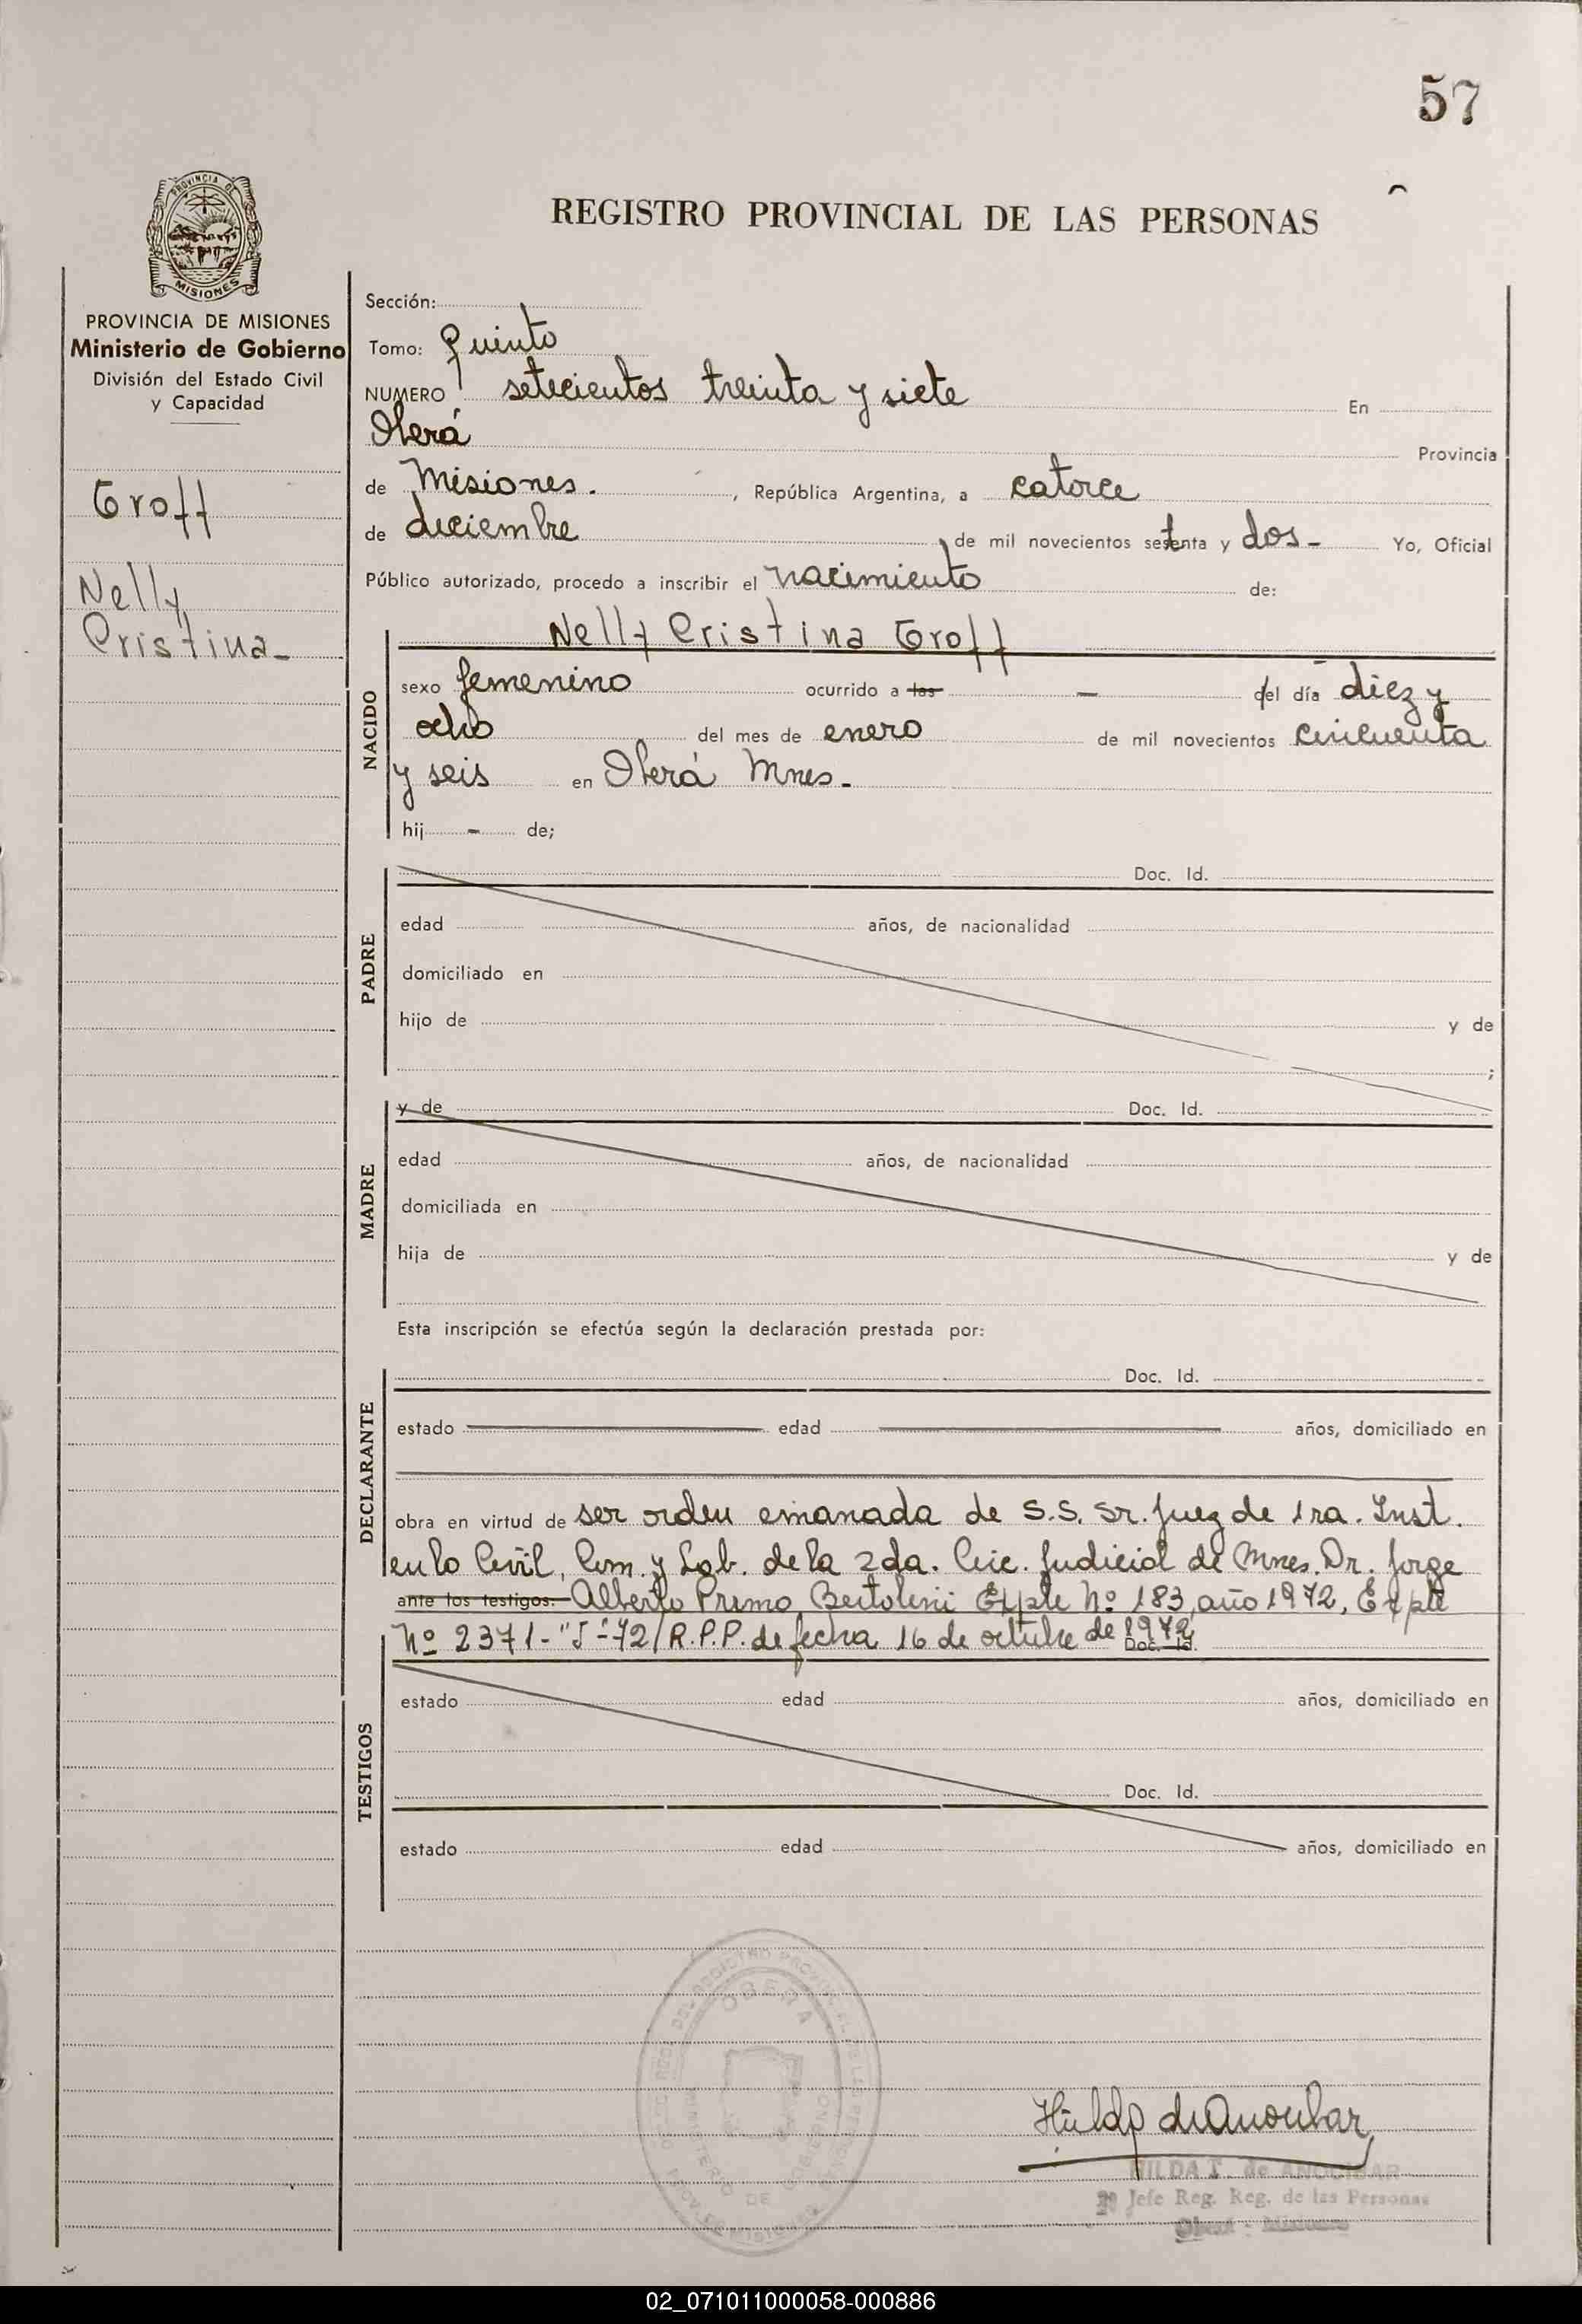 57
PROVINCIA DE
MISIONES
REGISTRO PROVINCIAL DE LAS PERSONAS
PROVINCIA DE MISIONES
Ministerio de Gobierno
División del Estado Civil
y Capacidad
Groff
Nelly
Cristina-
Sección:
Tomo: Quinto
NUMERO setecientos treinta y siete En
Oberá Provincia
de Misiones. , República Argentina, a catorce
de diciembre de mil novecientos setenta y dos- Yo, Oficial
Público autorizado, procedo a inscribir el nacimiento de:
Nelly Cristina Groff
NACIDO
sexo femenino ocurrido a las - del día diez y
ocho del mes de enero de mil novecientos cincuenta
y seis en Oberá Mnes-
hij - de;
PADRE
Doc. Id.
edad años, de nacionalidad
domiciliado en
hijo de y de
;
MADRE
y de Doc. Id.
edad años, de nacionalidad
domiciliada en
hija de y de
Esta inscripción se efectúa según la declaración prestada por:
DECLARANTE
Doc. Id.
estado edad años, domiciliado en
obra en virtud de ser orden emanada de S.S. Sr. Juez de 1ra. Inst.
en lo Civil, Com. y Lab. de la 2da. Circ. Judicial de Mnes. Dr. Jorge
ante los testigos: Alberto Primo Bertolini Expte Nº 183, año 1972, Expte
Nº 2371-"J"-72/R.P.P. de fecha 16 de octubre de 1972 Doc. Id.
TESTIGOS
estado edad años, domiciliado en
Doc. Id.
estado edad años, domiciliado en
OBERA
MINISTERIO DE GOBIERNO
Hilda de Anocibar
HILDA T. de ANOCIBAR
2º Jefe Reg. Reg. de las Personas
Oberá - Misiones
02_071011000058-000886